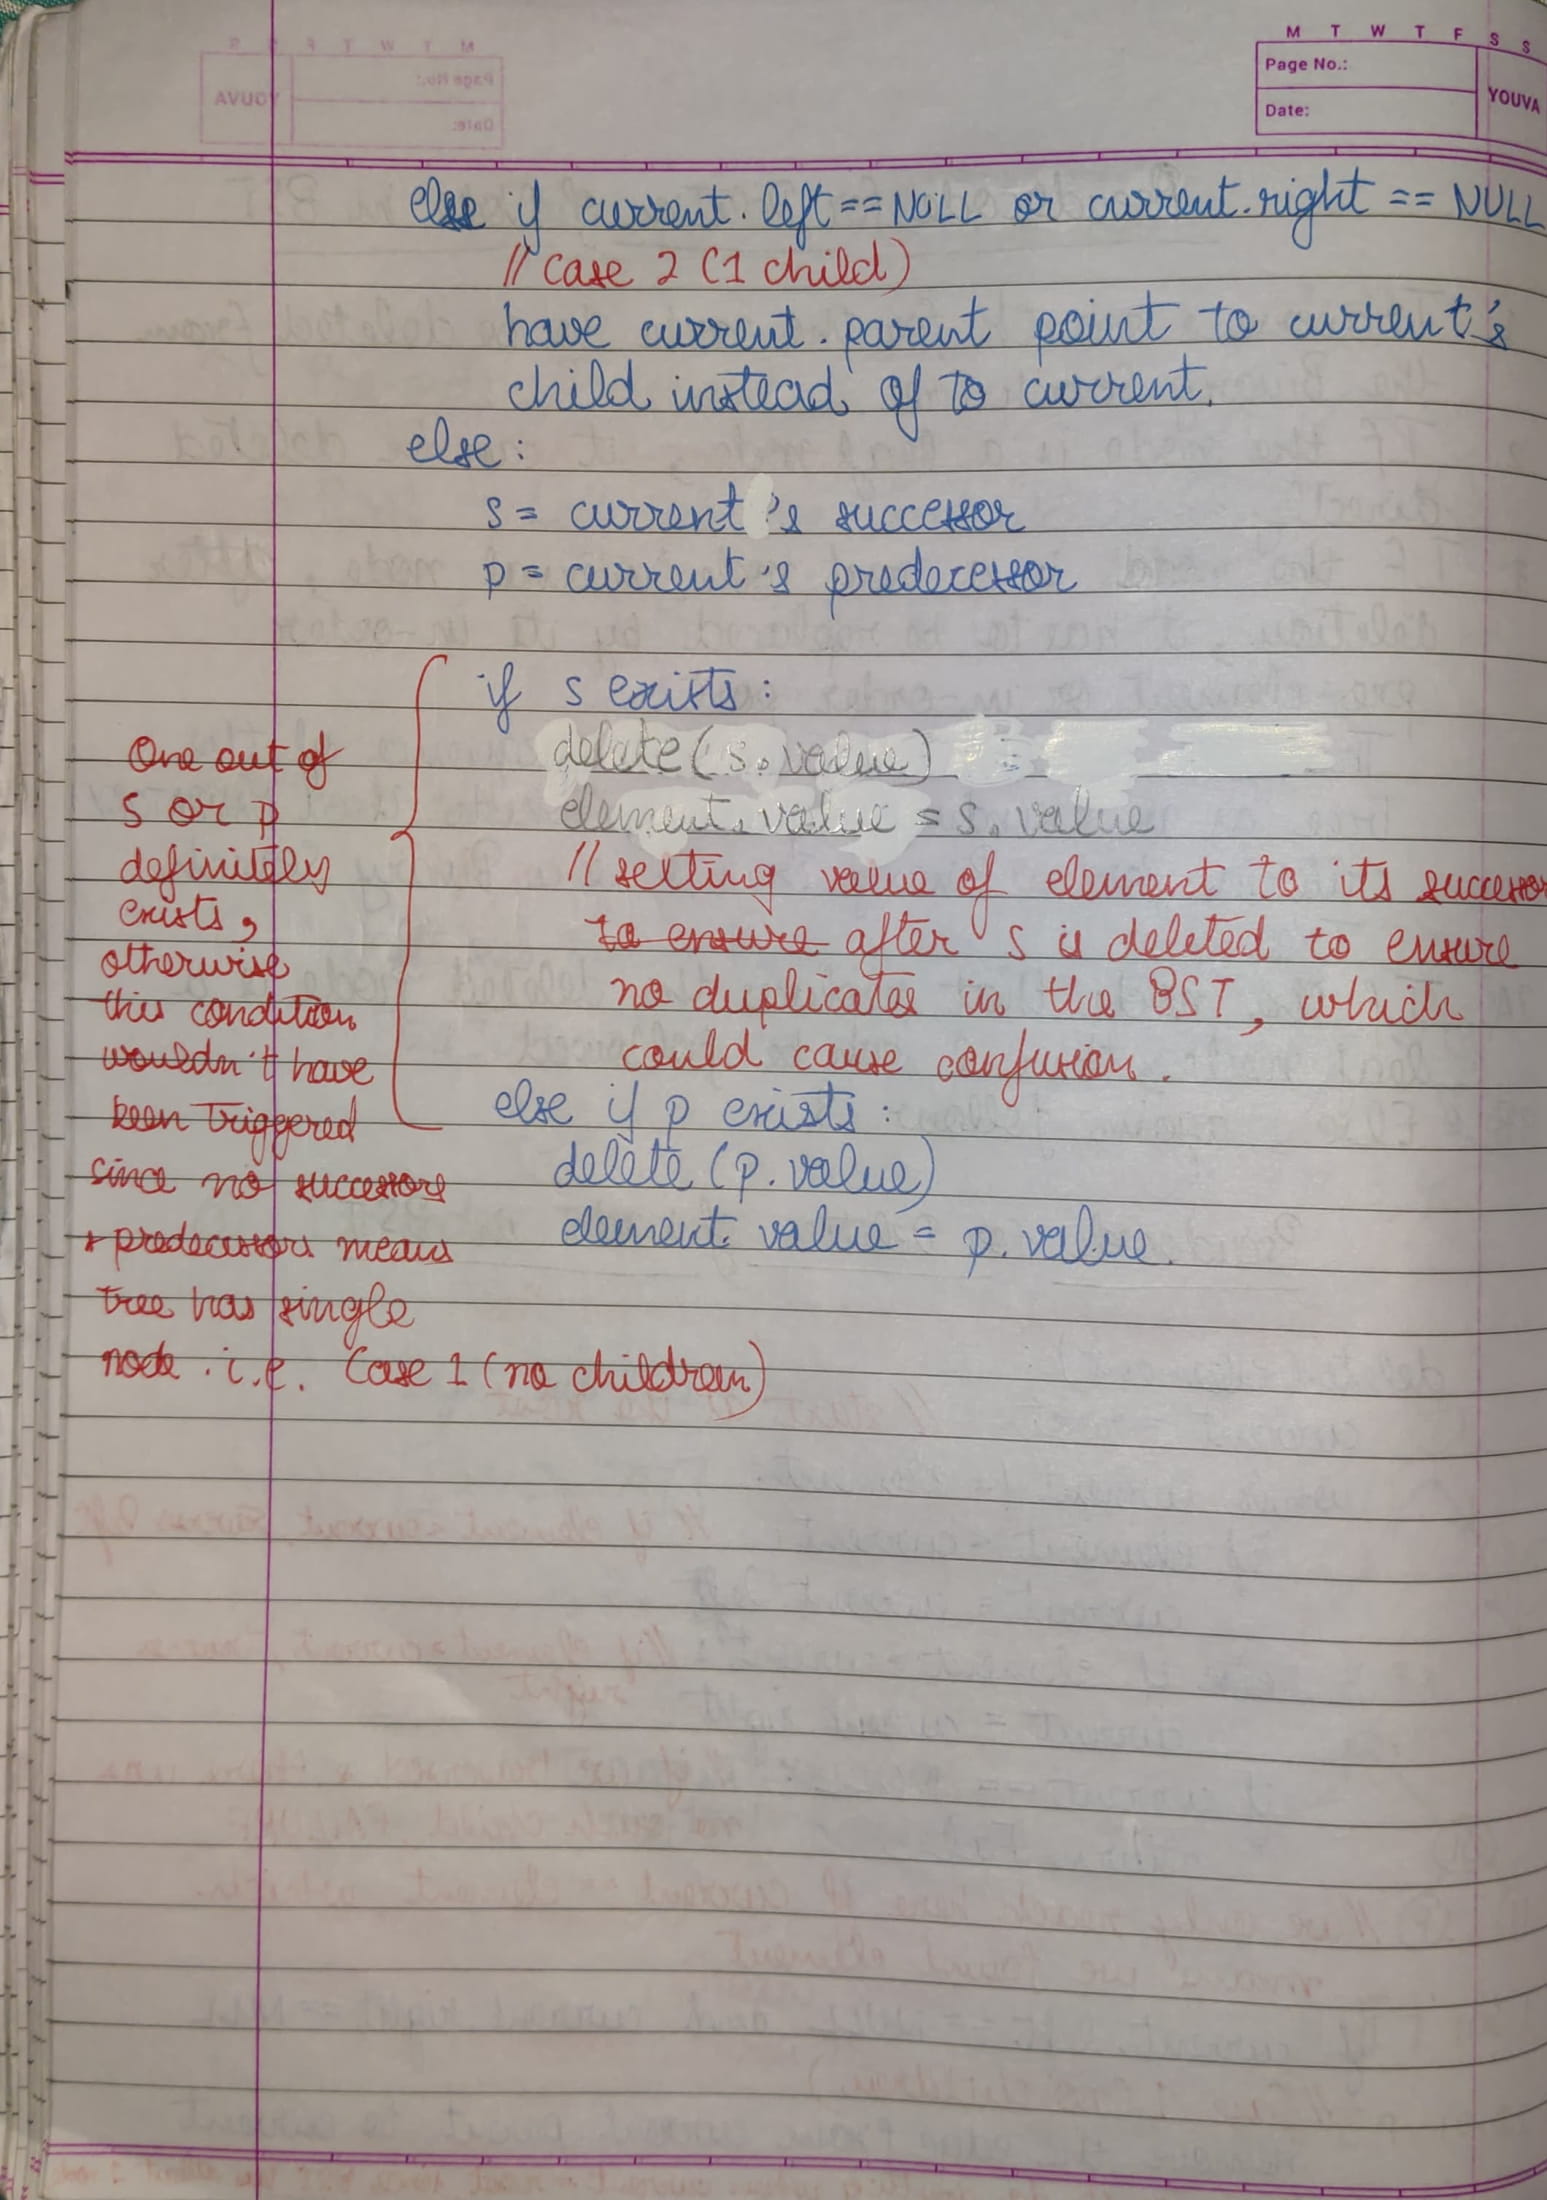 M T W T F S S
Page No.:
Date:
YOUVA
else if current.left == NULL or current.right == NULL
// case 2 (1 child)
have current.parent point to current's
child instead of to current.
else:
s = current's successor
p = current's predecessor
if s exists:
delete(s.value)
element.value = s.value
// setting value of element to its successor
to ensure after s is deleted to ensure
no duplicates in the BST, which
could cause confusion.
else if p exists:
delete(p.value)
element.value = p.value.
One out of
s or p
definitely
exists,
otherwise
this condition
wouldn't have
been triggered
since no successors
+ predecessors means
tree has single
node. i.e. Case 1 (no children)